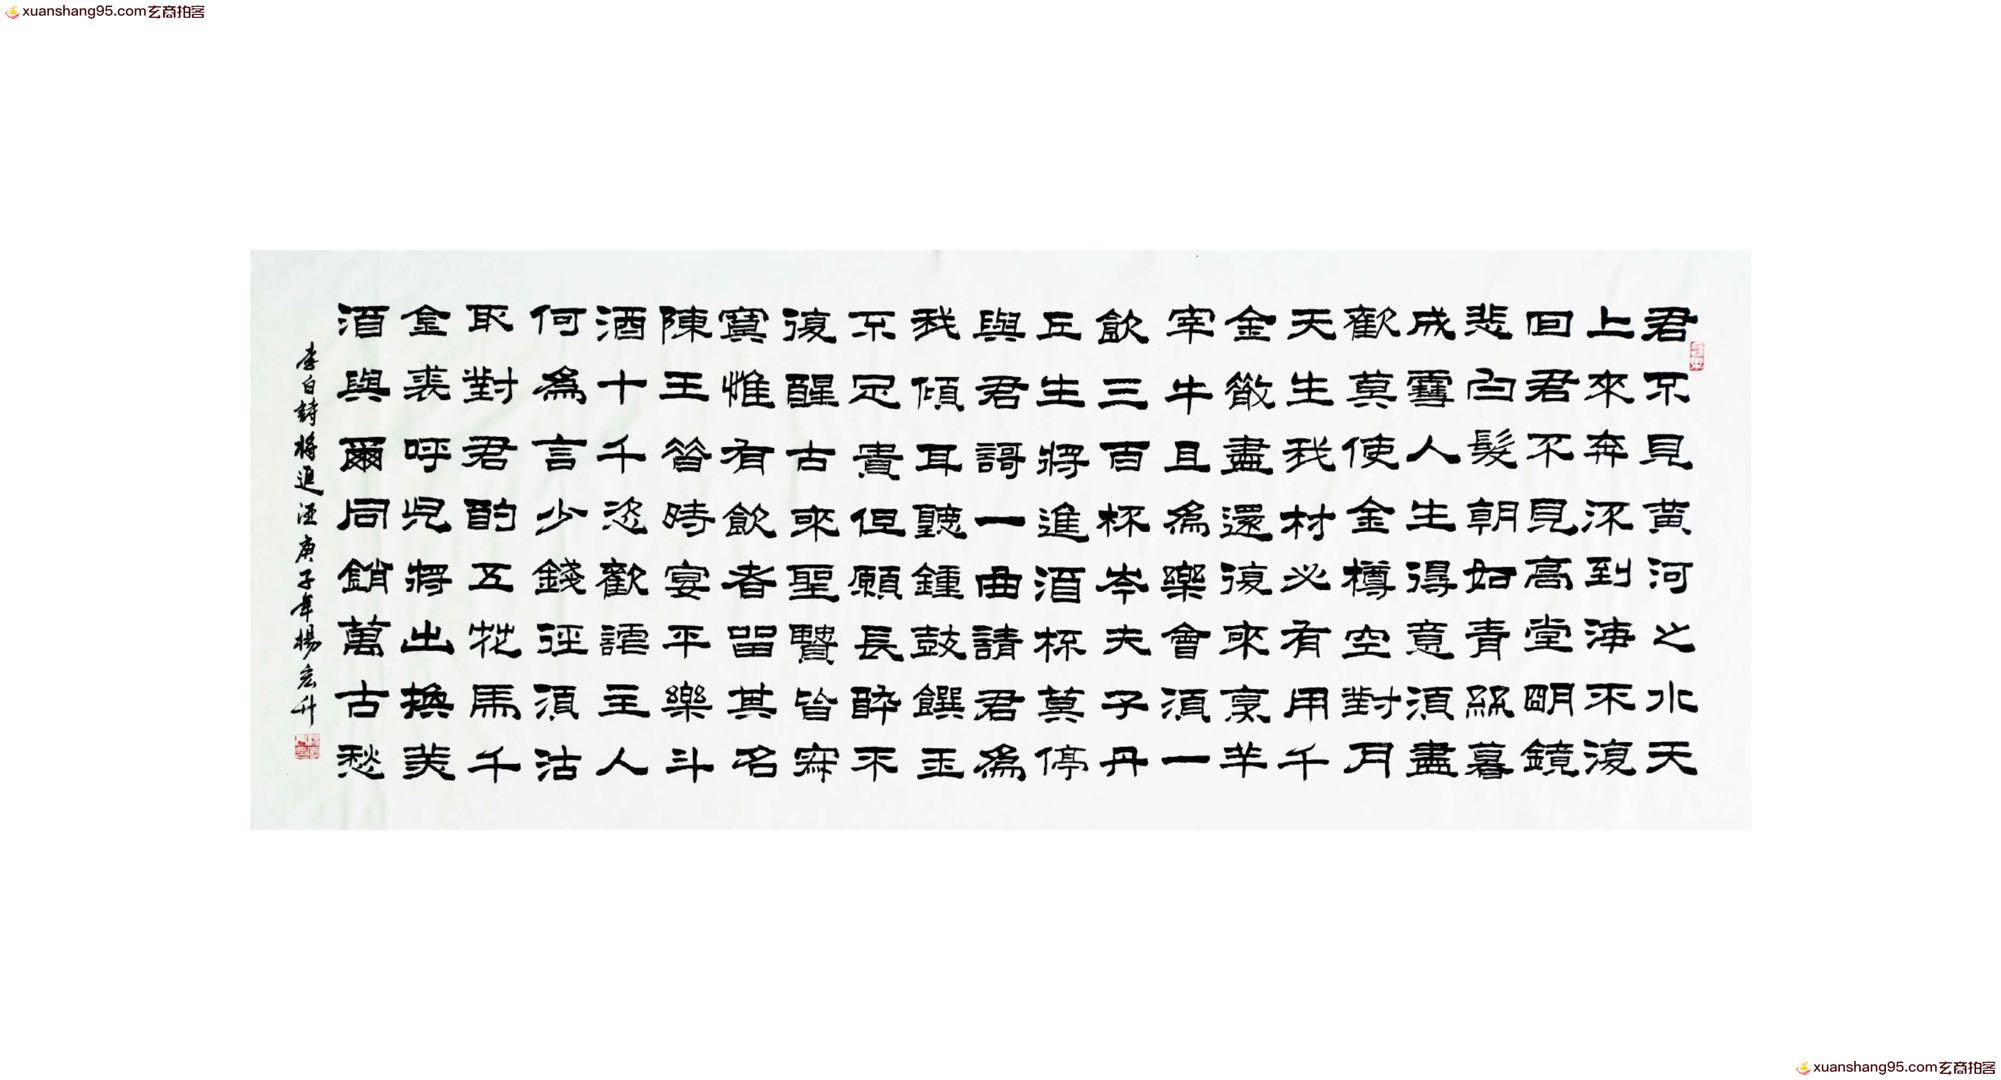 xuanshang95.com玄商拍客
君不見黃河之水天
上來奔流到海不復
回君不見高堂明鏡
悲白髮朝如青絲暮
成雪人生得意須盡
歡莫使金樽空對月
天生我材必有用千
金散盡還復來烹羊
宰牛且為樂會須一
飲三百杯岑夫子丹
丘生將進酒杯莫停
與君謌一曲請君為
我傾耳聽鍾鼓饌玉
不足貴但願長醉不
復醒古來聖賢皆寂
寞惟有飲者留其名
陳王昔時宴平樂斗
酒十千恣歡謔主人
何為言少錢徑須沽
取對君酌五花馬千
金裘呼兒將出換美
酒與爾同銷萬古愁
李白詩將進酒庚子年楊宏升
xuanshang95.com玄商拍客